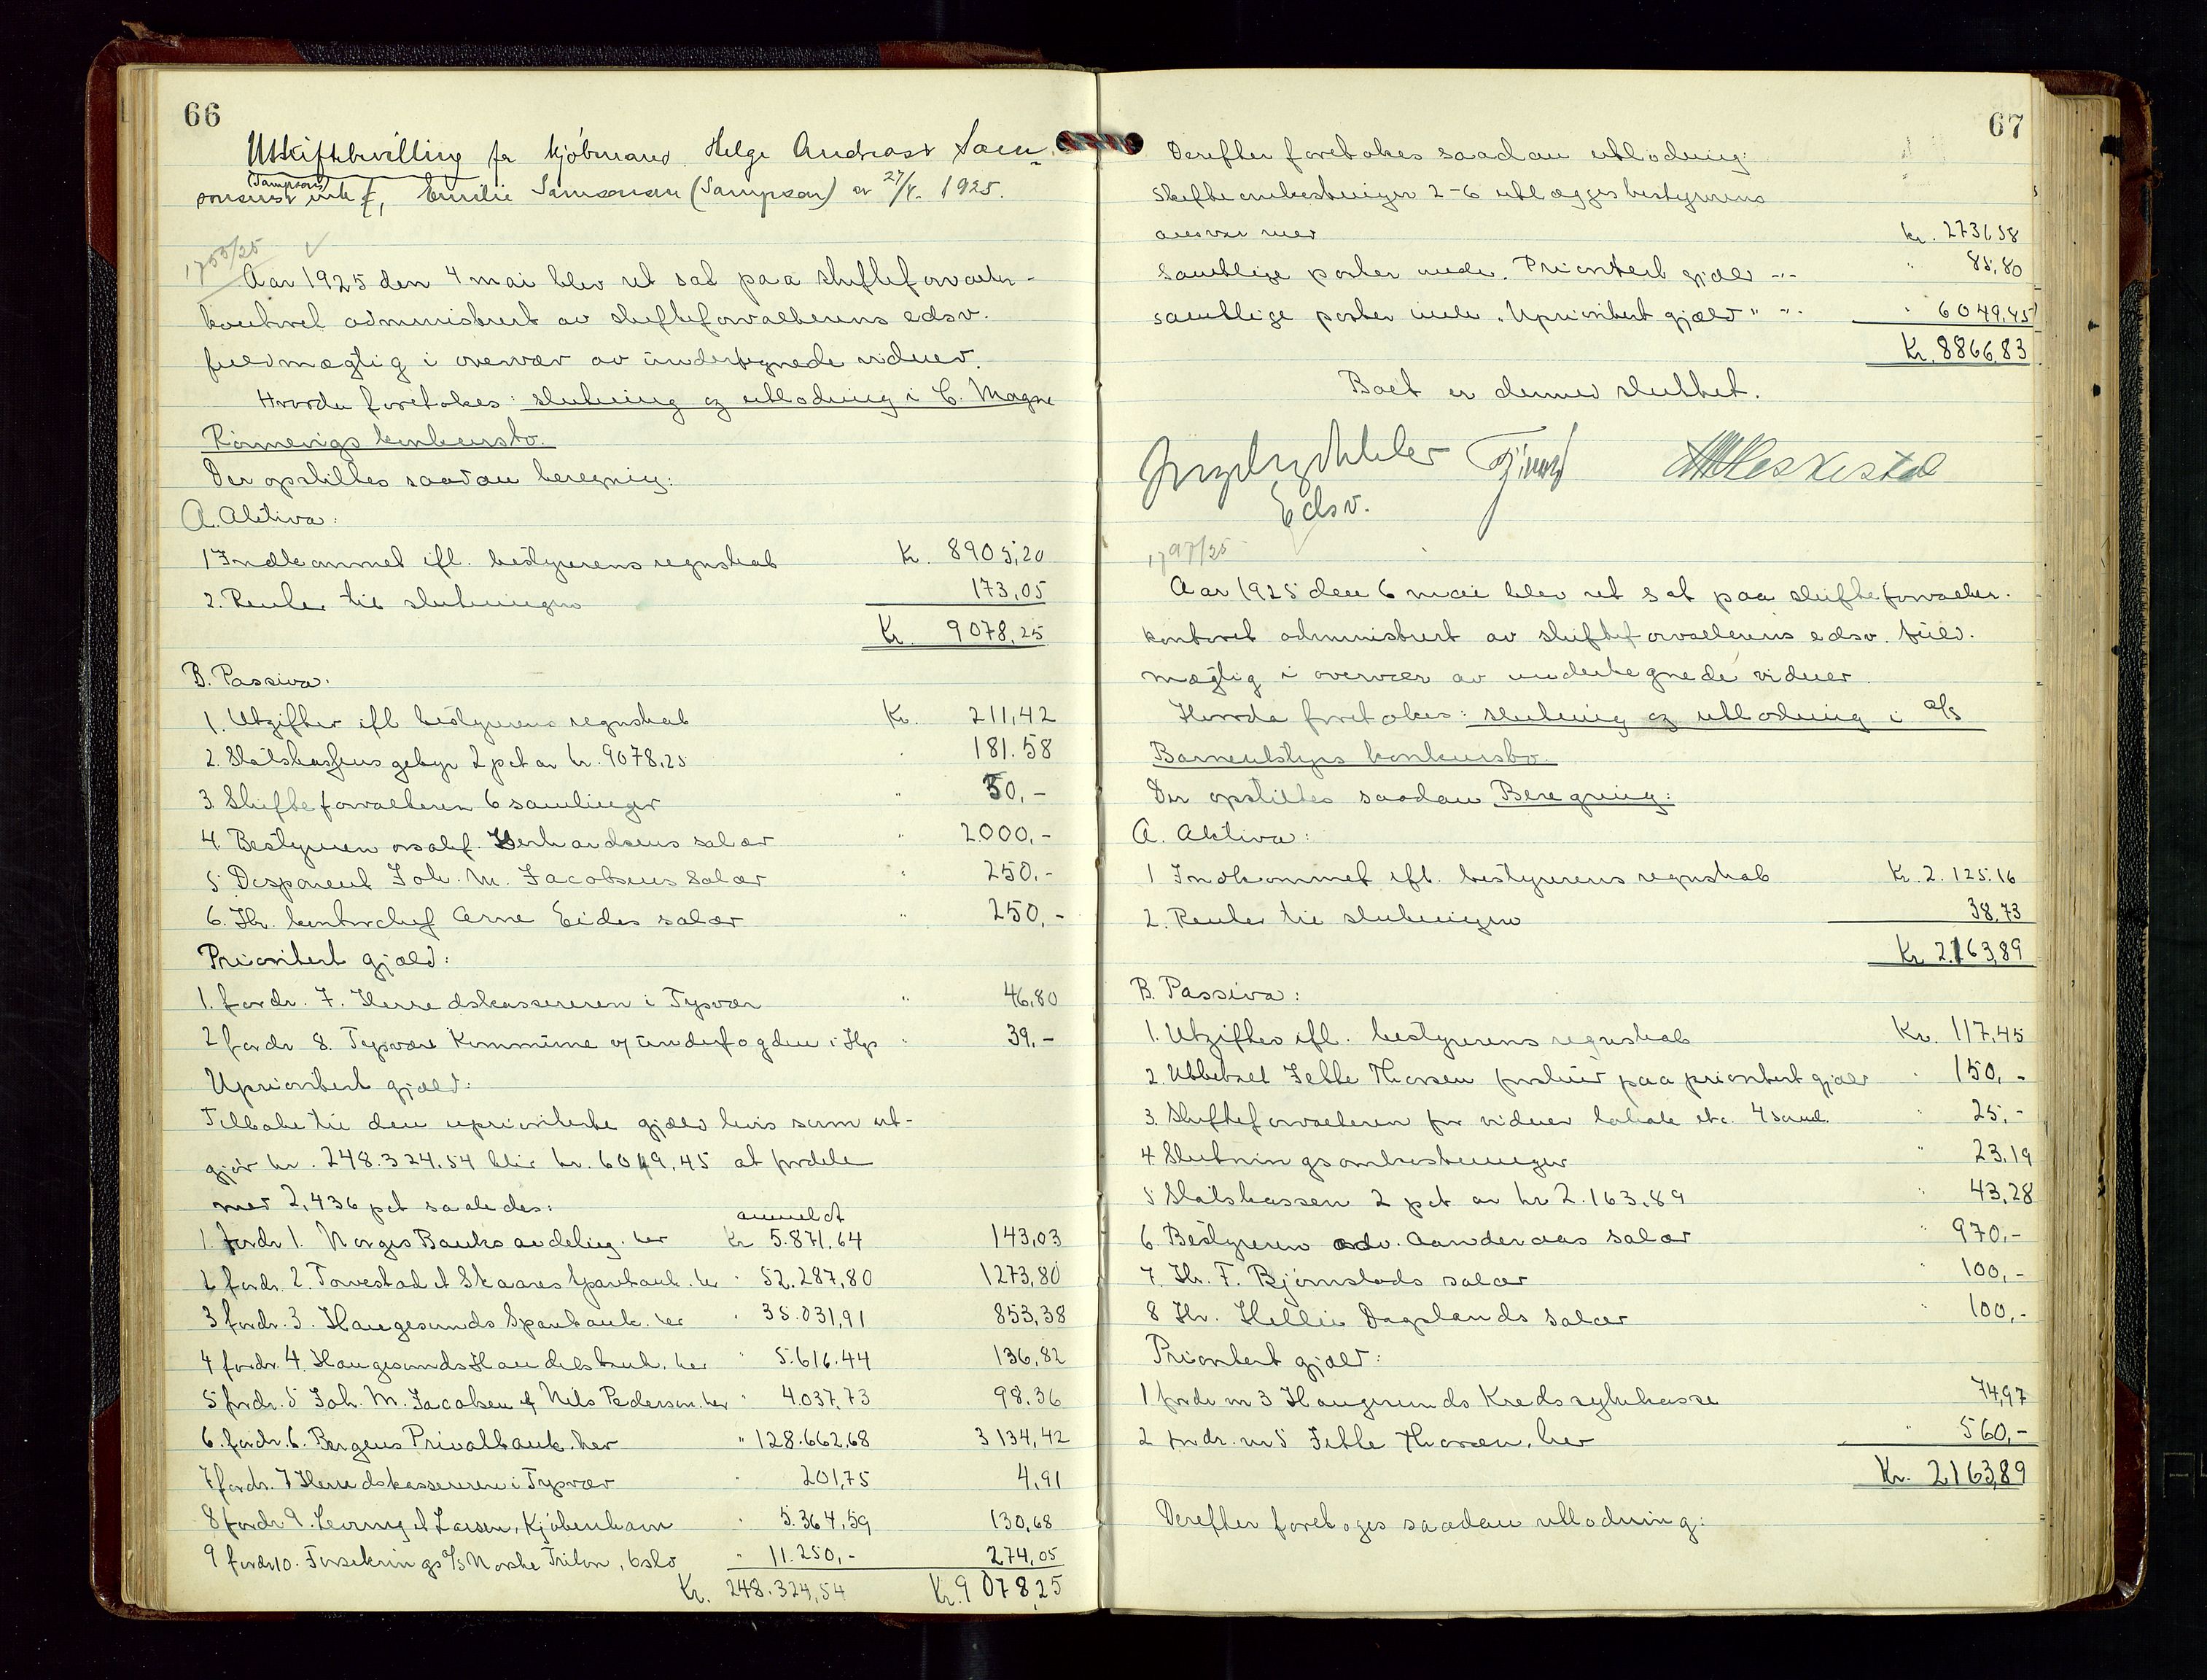 66
Utskiftebevilling for kjøbmand Helge Andreas Sam-
(Sampson)
sonsens enke f, Emilie Samsonsen (Sampson) av 27/4. 1925.
1753/25
Aar 1925 den 4 mai blev ret sat paa skifteforvalter-
kontoret administrert av skifteforvalterens edsv.
fuldmægtig i overvær av undertegnede vidner.
Hvorda foretokes: slutning og utlodning i C. Magne
Rønnevigs konkursbo.
Der opstilles saadan beregning:
A. Aktiva:
1 Indkommet ifl. bestyrerens regnskab Kr. 8905,20
2. Renter til slutningen 173,05
Kr. 9078,25
B. Passiva:
1. Utgifter ifl bestyrerens regnskab Kr. 211,42
2. Statskassens gebyr 2 pct av kr. 9078,25 " 181.58
3 Skifteforvalteren 6 samlinger " 50,-
4. Bestyreren orsakf. Gerhardsens salær " 2000,-
5 Disponent Joh. M. Jacobsens salær " 250,-
6. Hr. kontorchef Arne Eides salær " 250,-
Prioritert gjæld:
1. fordr. 7. Herredskassereren i Tysvær " 46,80
2 fordr 8. Tysvær Kommune v/ underfogden i Hgs " 39,-
Uprioritert gjæld:
Tilbake til den uprioriterte gjæld hvis sum ut-
gjør kr. 248.324,54 blir kr. 6049,45 at fordele
med 2,436 pct saaledes:
anmeldt
1. fordr 1. Norges Banks avdeling. her Kr 5.871,64 143,03
2 fordr. 2. Torvestad et Skaares Sparebank. her " 52.287,80 1273,80
3 fordr. 3. Haugesunds Sparebank. her " 35.031,91 853,38
4 fordr. 4. Haugesunds Handelsbank. her " 5.616.44 136,82
5 fordr. 5 Joh. M. Jacobsen & Nils Pederson. her " 4.037,73 98,36
6. fordr. 6. Bergens Privatbank. her " 128.662,68 3134,42
7 fordr. 7 Herredskassereren i Tysvær " 201,75 4,91
8 fordr 9. Levring et Larsen, Kjøbenhavn " 5.364,59 130,68
9 fordr 10. Forsikrings a/s Norske Triton, Oslo " 11.250,- 274,05
Kr. 248.324,54 Kr. 9078,25
67
Derefter foretokes saadan utlodning:
Skifteomkostninger 2-6 utlægges bestyrerens
ansvar med kr. 2731,58
Samtlige poster under. Prioritert gjæld -"- " 85,80
samtlige poster under "Uprioritert gjæld" -"- " 6049,45
Kr. 8866,83
Boet er dermed sluttet.
Edsv.
1797/25
Aar 1925 den 6 mai blev ret sat paa skifteforvalter-
kontoret administrert av skifteforvalterens edsv. fuld-
mægtig i overvær av undertegnede vidner.
Hvorda foretokes: slutning og utlodning i a/s
Barneutstyrs konkursbo.
Der opstilles saadan Beregning:
A. Aktiva:
1 Indkommet ifl. bestyrerens regnskab Kr. 2.125.16
2. Renter til slutningen 38,73
Kr 2.163,89
B. Passiva:
1. Utgifter ifl. bestyrerens regnskab Kr. 117,45
2. Utbetalt Jette Thorsen forskud paa prioritert gjæld " 150,-
3. Skifteforvalteren for vidner lokale etc. 4 saml. " 25,-
4. Slutningsomkostninger " 23,19
5 Statskassen 2 pct av kr 2.163,89 " 43,28
6. Bestyreren adv. Aanderaas salær " 970,-
7. Hr. F. Bjørnstads salær " 100,-
8 Hr. Hellie Dagslands salær " 100,-
Prioritert gjæld:
1 fordr nr 3 Haugesunds Kredssykekasse 74,97
2 fordr. nr 5 Jette Thorsen, her " 560,-
Kr. 2163,89
Derefter foretoges saadan utlodning: